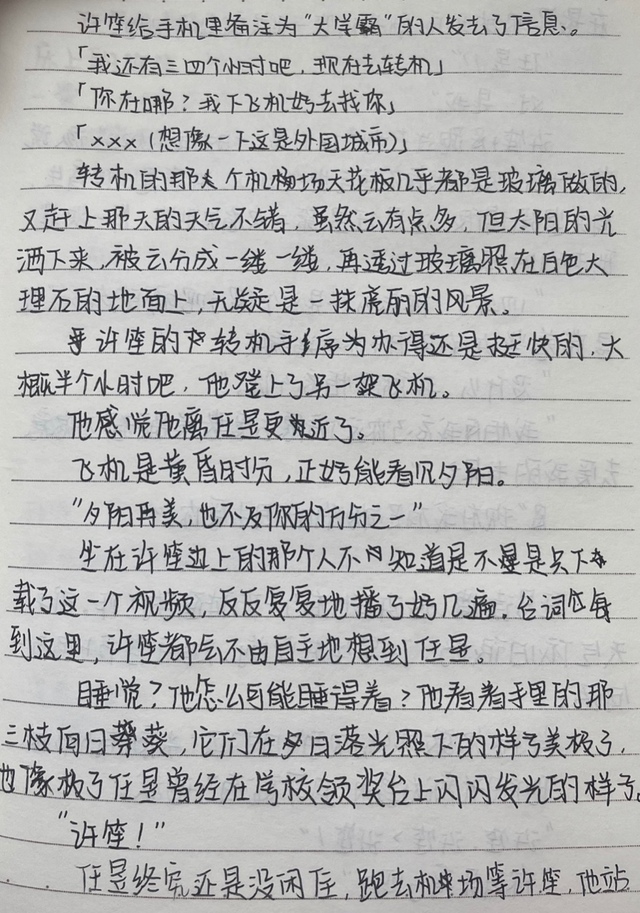 许筵给手机里备注为“大学霸”的人发去了信息。
「我还有三四个小时吧，现在去转机」
「你在哪？我下飞机好去找你」
「xxx（想像一下这是外国城市）」
转机的那个机场天花板几乎都是玻璃做的，
又赶上那天的天气不错，虽然云有点多，但太阳的光
洒下来，被云分成一缕一缕，再透过玻璃照在白色大
理石的地面上，无疑是一抹亮丽的风景。
许筵的转机手续办得还是挺快的，大
概半个小时吧，他登上了另一架飞机。
他感觉他离任昱更近了。
飞机是黄昏时分，正好能看见夕阳。
“夕阳再美，也不及你的万分之一”
坐在许筵边上的那个人不知道是不是只下
载了这一个视频，反反复复地播了好几遍，台词每
到这里，许筵都会不由自主地想到任昱。
睡觉？他怎么可能睡得着？他看着手里的那
三枝向日葵，它们在夕日落光照下的样子美极了，
也像极了任昱曾经在学校领奖台上闪闪发光的样子。
“许筵！”
任昱终究还是没闲住，跑去机场等许筵，他站